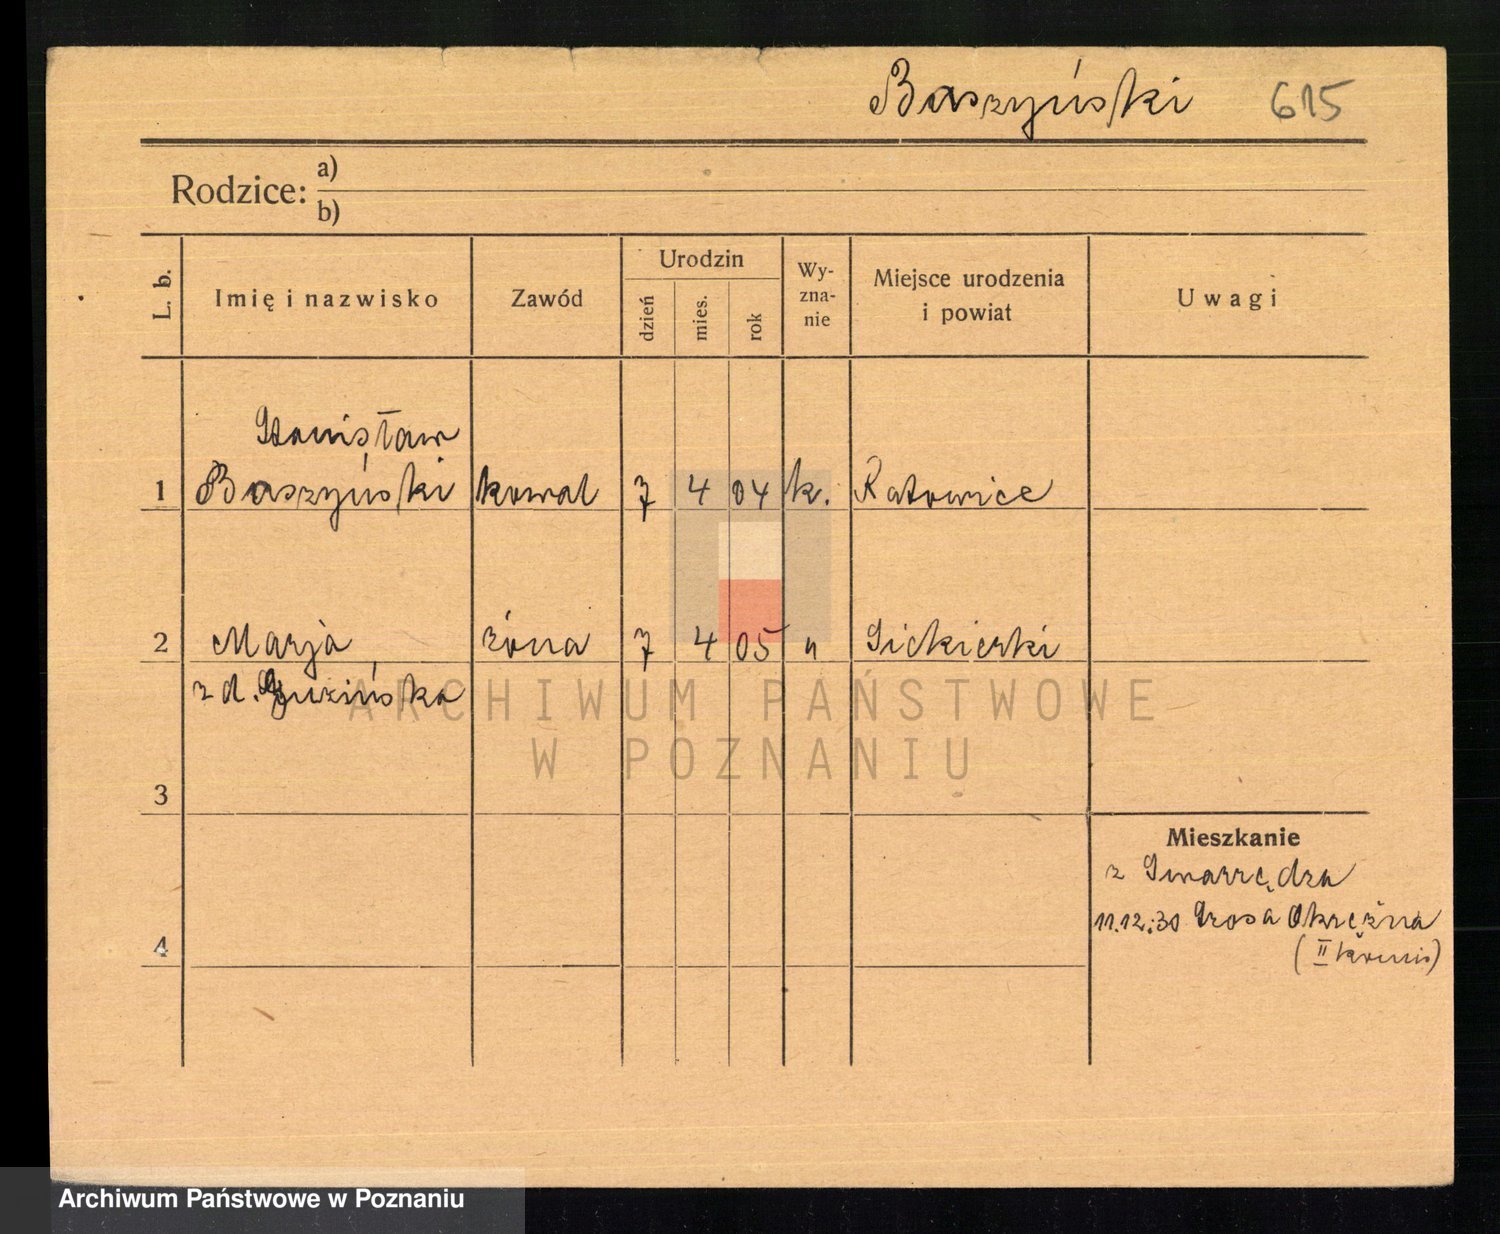 Baszyński 615
Rodzice: a)
b)
L. b. Imię i nazwisko Zawód Urodzin dzień mies. rok Wy-zna-nie Miejsce urodzenia i powiat Uwagi
Stanisław
1 Baszyński kowal 7 4 04 k. Katowice
2 Marja żona 7 4 05 " Siekierki
z d.
3
Mieszkanie
z Swarzędza
11.12.30 Okrężna
4
ARCHIWUM PAŃSTWOWE
W POZNANIU
Archiwum Państwowe w Poznaniu